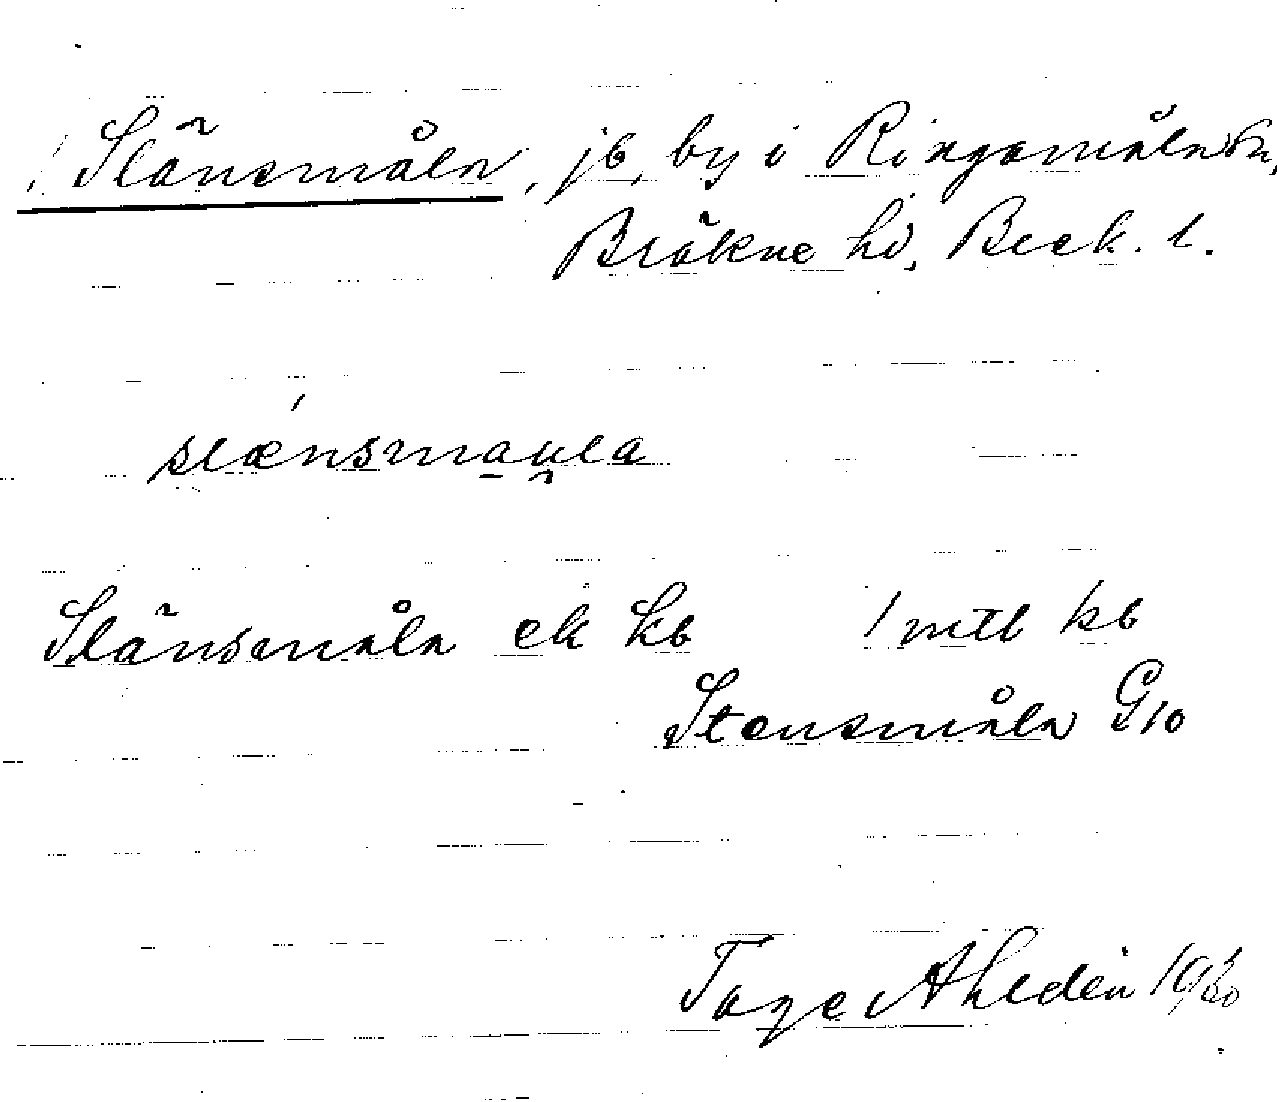 Slänsmåla, jb, by i Ringamåla sn,
Bräkne hd, Blek. l.
slænsmaula
Slänsmåla ek hb 1 mtl kb
Stensmåla G10
Tage Ahldén 1930